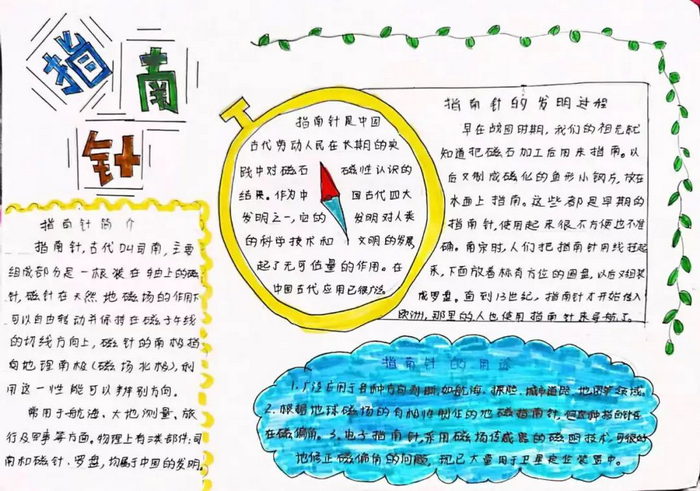 指南
针
指南针简介
指南针,古代叫司南,主要
组成部分是一根装在轴上的磁
针,磁针在天然地磁场的作用下
可以自由转动并保持在磁子午线
的切线方向上,磁针的南极指
向地理南极(磁场北极),利
用这一性能可以辨别方向。
常用于航海、大地测量、旅
行及军事等方面。物理上有
南和磁针、罗盘,均属于中国的发明。
指南针是中国
古代劳动人民在长期的实
践中对磁石磁性认识的
结果。作为中国古代四大
发明之一,它的发明对人类
的科学技术和文明的发展,
起了无可估量的作用。在
中国古代应用已很广泛。
指南针的发明过程
早在战国时期,我们的祖先就
知道把磁石加工后用来指南。以
后又制成磁化的鱼形小钢片,放在
水面上指南。这些都是早期的
指南针,使用起来很不方便也不准
确。南宋时,人们把指南针用线挂起
来,下面放着标有方位的圆盘,以后又组装
成罗盘。直到13世纪,指南针才开始传入
欧洲,那里的人也使用指南针来导航了。
指南针的用途
1.广泛应用于各种方向判断,如航海、探险、城市道路、地图等领域。
2.根据地球磁场的有极性制作的地磁指南针,但这种指南针存
在磁偏角。3.电子指南针,采用磁场传感器的磁阻技术,可很好
地修正磁偏角的问题,现已大量用于卫星定位装置中。